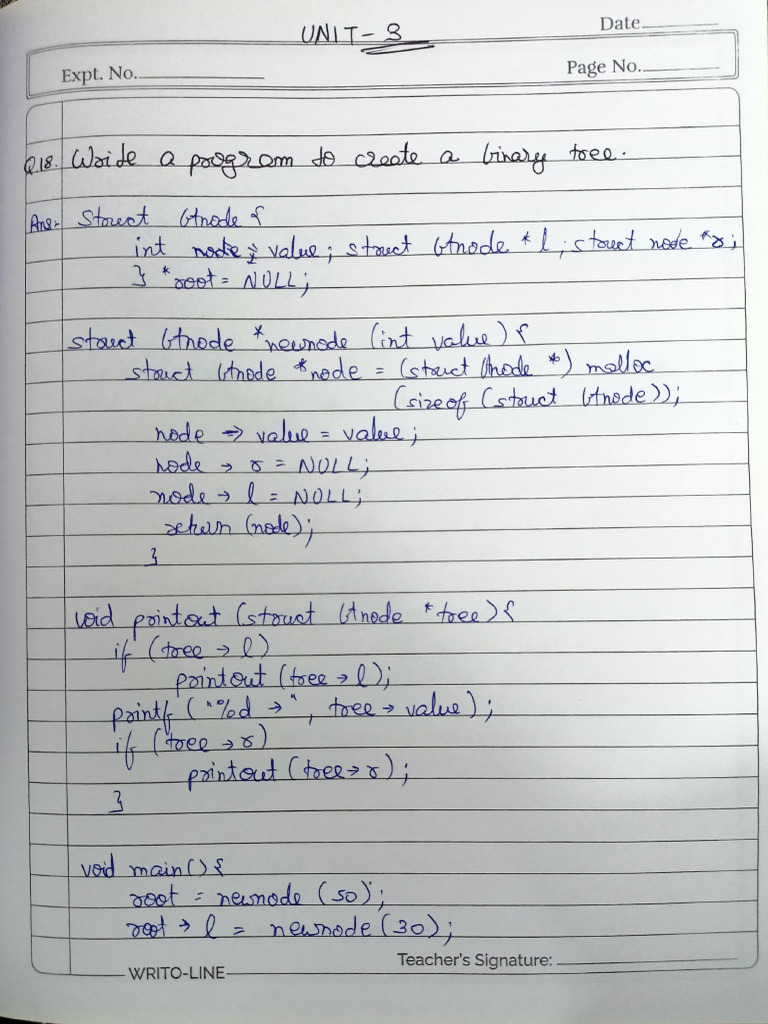 UNIT-3
Date
Expt. No.
Page No.
Q18. Write a program to create a binary tree.
Ans:- Struct btnode {
int node; value; struct btnode *l; struct node *r;
} *root = NULL;
struct btnode *newnode (int value) {
struct btnode *node = (struct bnode *) malloc
(sizeof (struct btnode));
node → value = value;
node → r = NULL;
node → l = NULL;
return (node);
}
void printout (struct btnode *tree) {
if (tree → l)
printout (tree → l);
printf ("%d →", tree → value);
if (tree → r)
printout (tree → r);
}
void main() {
root = newnode (50);
root → l = newnode (30);
Teacher's Signature:
WRITO-LINE